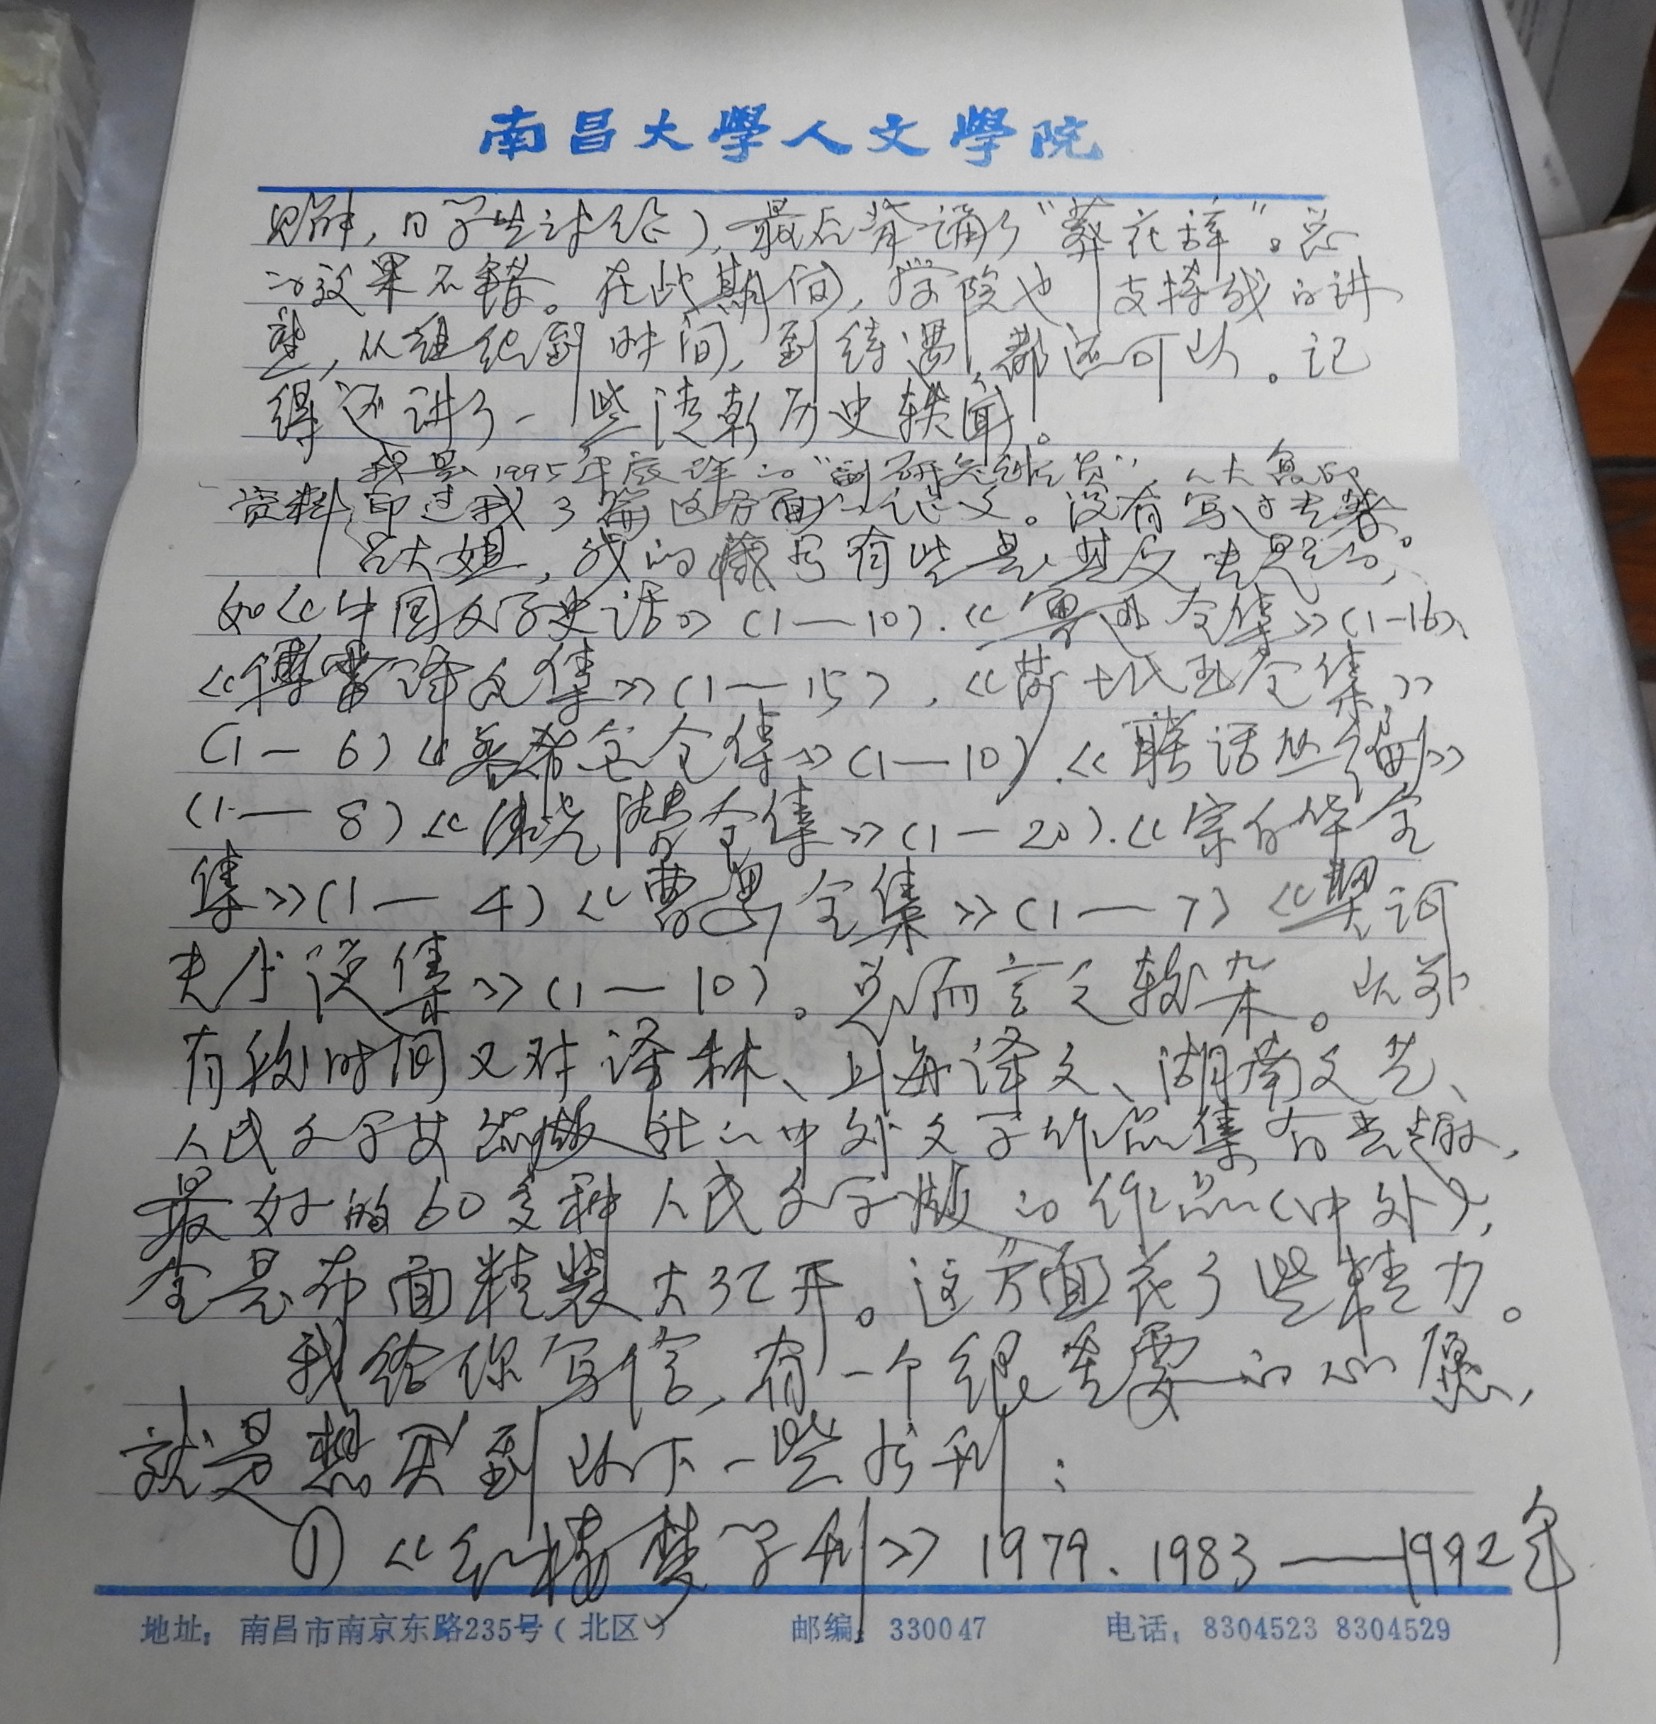 南昌大學人文學院
见解,日学生讨论),最后背诵了“葬花辞”。总
的效果不错。在此期间,学院也支持我的讲
型,从组织到时间,到待遇,都还可以。记
得还讲了一些清朝历史轶闻。
我是1995年底评的“副研究馆员”,人大复印
资料印过我3篇这方面的论文。没有写过专著。
吕大姐,我的藏书有些是
如《中国文学史话》(1—10).《鲁迅全集》(1-16)、
《傅雷译文集》(1—15),《莎士比亚全集》
(1—6)《泰希全集》(1—10),《联话丛编》
(1—8)《全集》(1—20).《宗白华全
集》(1—4)《曹禺全集》(1—7)《契诃
夫小说集》(1—10)。总而言之较杂。此外
有段时间又对译林、上海译文、湖南文艺、
人民文学出版社的中外文学作品集有兴趣,
最好的60多种人民文学版的作品(中外),
全是布面精装大32开。这方面花了些精力。
我给你写信,有一个很重要的心愿,
就是想买到以下一些书刊:
① 《红楼梦学刊》1979、1983——1992年
地址:南昌市南京东路235号(北区) 邮编:330047 电话:8304523 8304529